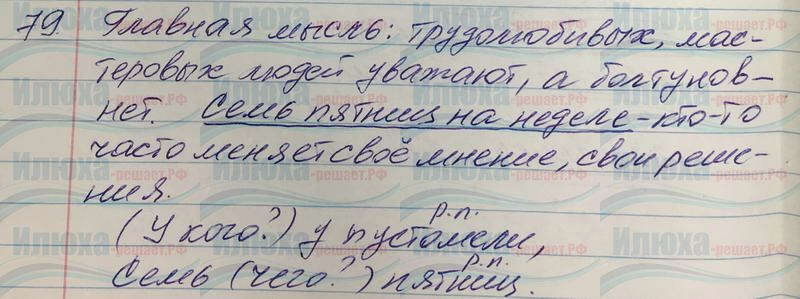 79. Главная мысль: трудолюбивых, мас-
теровых людей уважают, а болтунов -
нет. Семь пятниц на неделе - кто-то
часто меняет своё мнение, свои реше-
ния.
р.п.
(У кого?) у пустомели,
р.п.
Семь (чего?) пятниц.
Илюха-решает.РФ